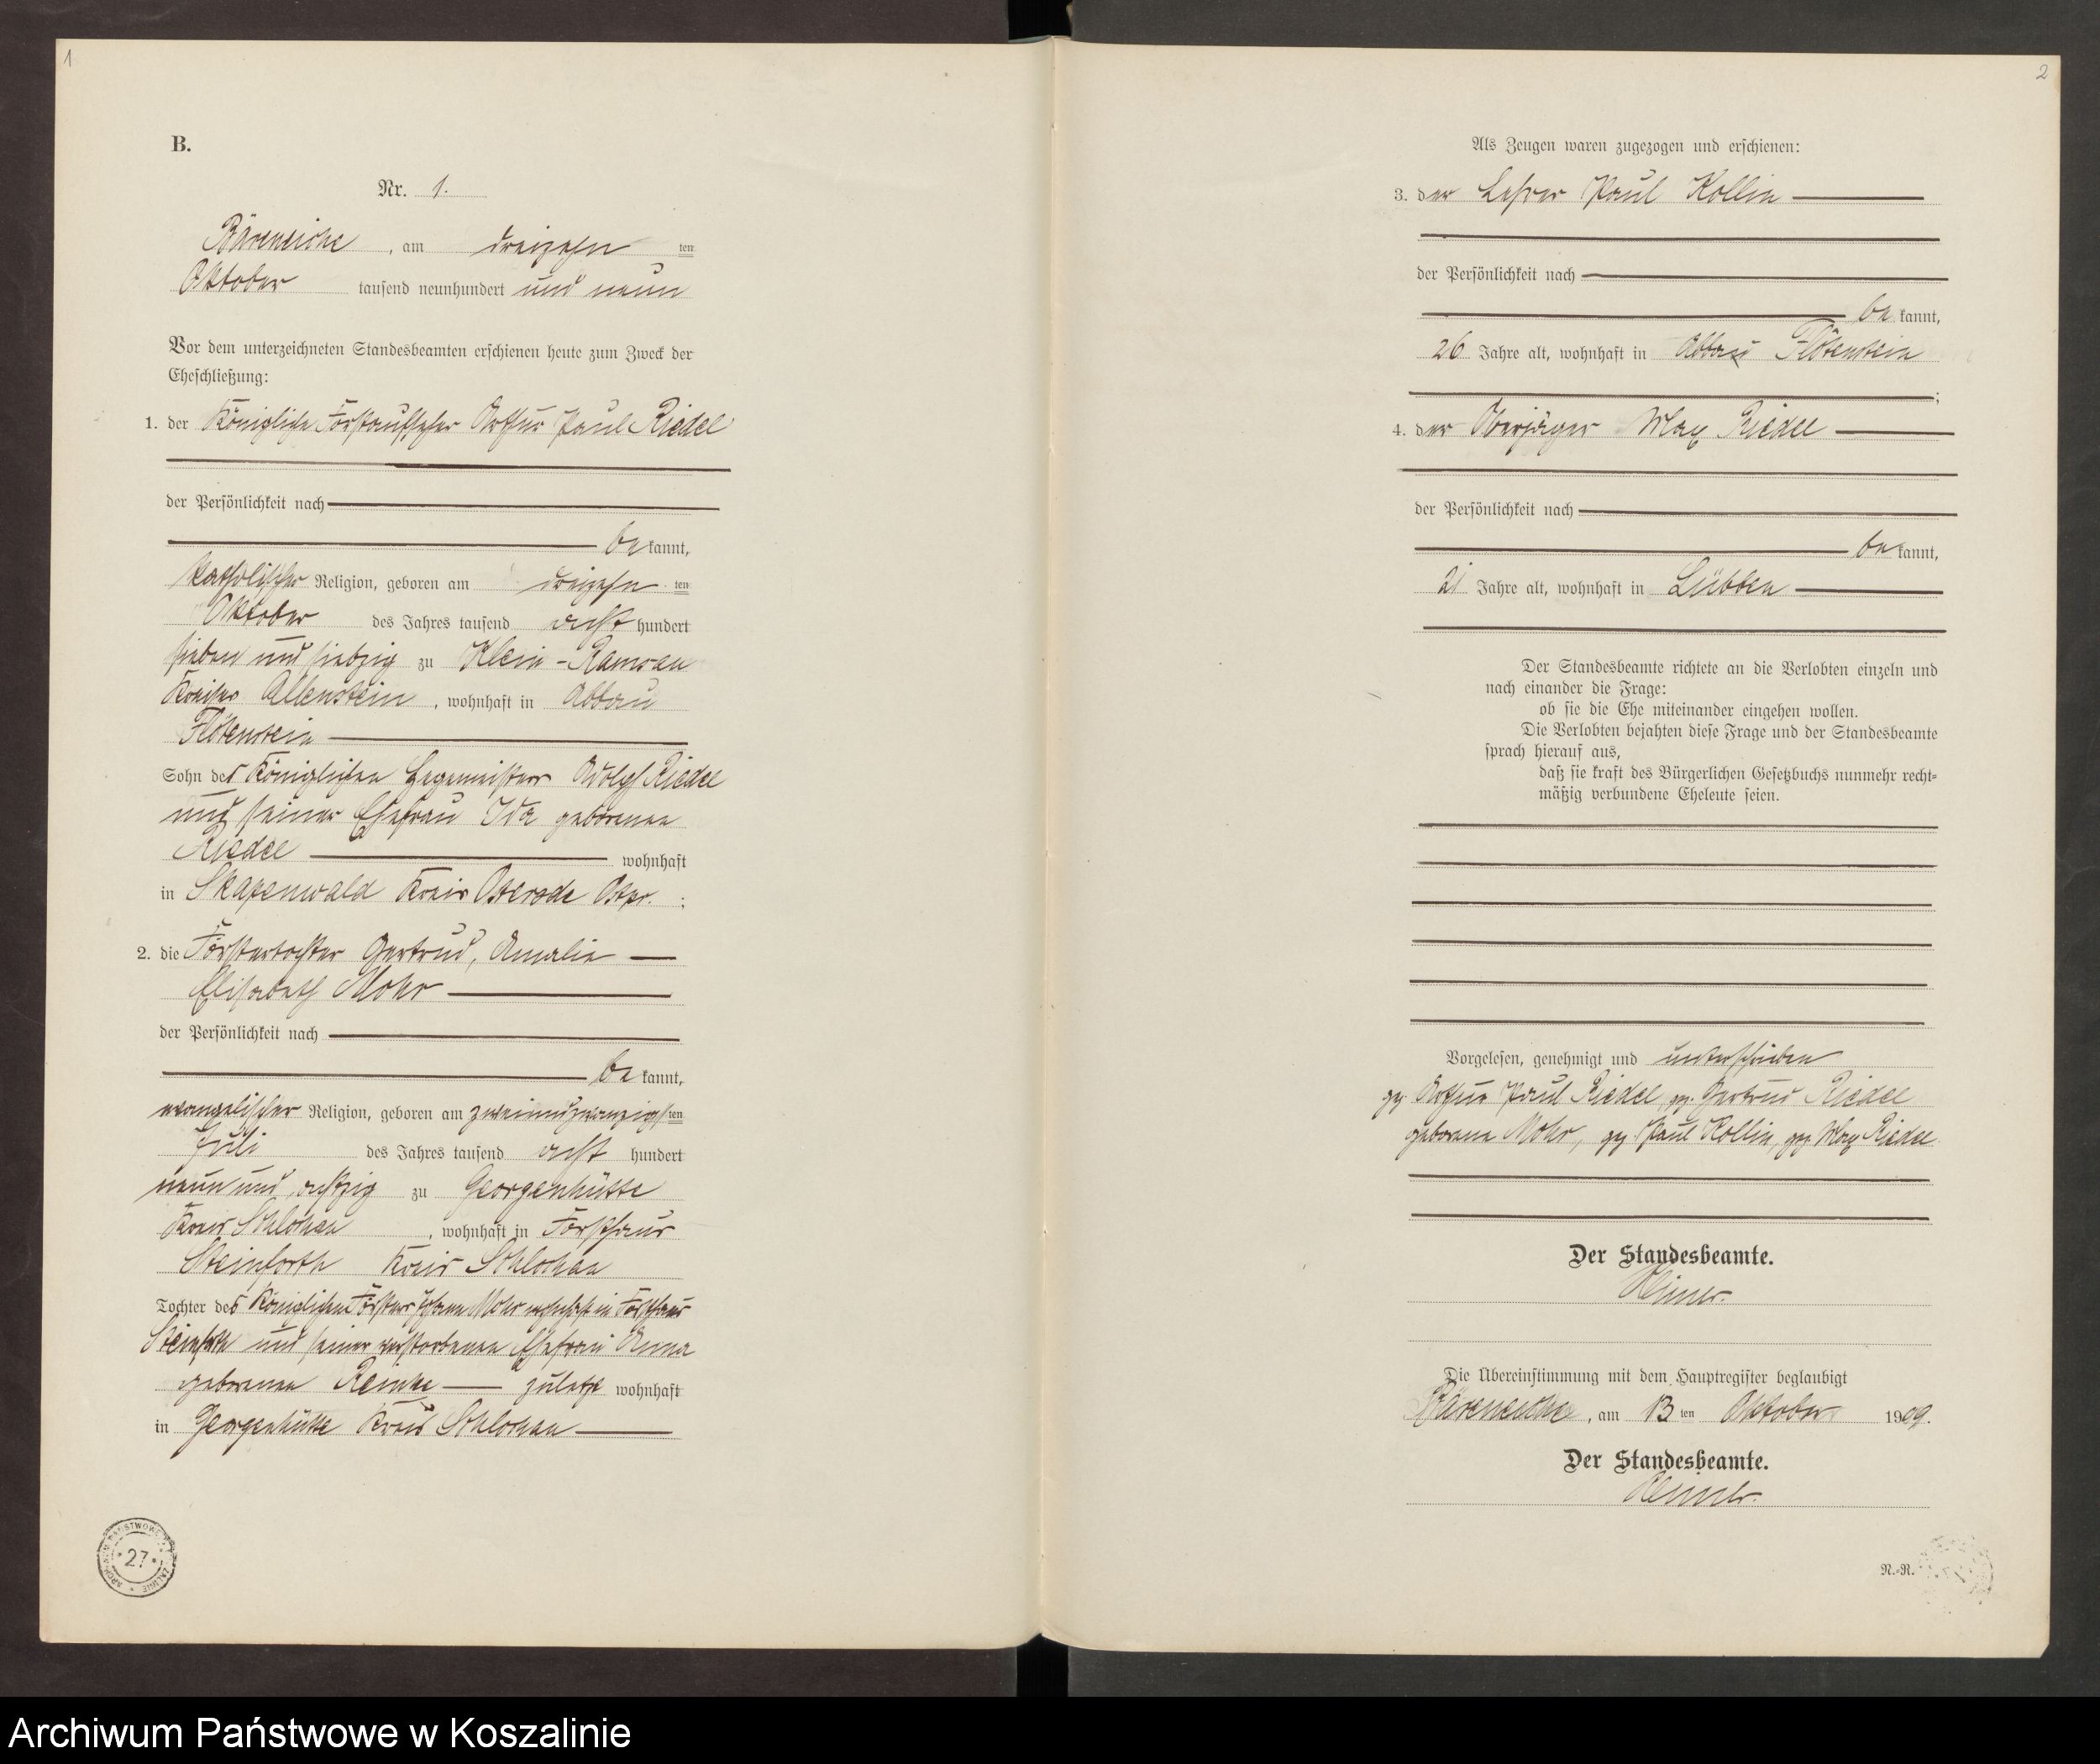 1
B.
Nr. 1.
Bäreneiche, am dreizehn ten
Oktober tausend neunhundert und neun
Vor dem unterzeichneten Standesbeamten erschienen heute zum Zweck der
Eheschließung:
1. der Königliche Forstaufseher Arthur Paul Riedel
der Persönlichkeit nach
be kannt,
katholischer Religion, geboren am dreizehn ten
Oktober des Jahres tausend acht hundert
sieben und siebzig zu Klein-Ramsau
Kreises Allenstein, wohnhaft in Abbau
Flötenstein
Sohn des Königlichen Hegemeisters Adolf Riedel
und seiner Ehefrau Ida geborenen
Riedel wohnhaft
in Skapenwald Kreis Osterode Ostpr. ;
2. die Förstertochter Gertrud, Amalie
Elisabeth Mohr
der Persönlichkeit nach
be kannt,
evangelischer Religion, geboren am zweiundzwanzigsten
Juli des Jahres tausend acht hundert
neun und achtzig zu Georgenhütte
Kreis Schlochau, wohnhaft in Forsthaus
Steinforth Kreis Schlochau
Tochter des Königlichen Försters Johann Mohr wohnhaft in Forsthaus
Steinforth und seiner verstorbenen Ehefrau Anna
geborenen zuletzt wohnhaft
in Georgenhütte Kreis Schlochau
27
2
Als Zeugen waren zugezogen und erschienen:
3. der Lehrer Paul Kollin
der Persönlichkeit nach
be kannt,
26 Jahre alt, wohnhaft in Abbau Flötenstein
;
4. der Oberjäger Max Riedel
der Persönlichkeit nach
be kannt,
21 Jahre alt, wohnhaft in Lübben
Der Standesbeamte richtete an die Verlobten einzeln und
nach einander die Frage:
ob sie die Ehe miteinander eingehen wollen.
Die Verlobten bejahten diese Frage und der Standesbeamte
sprach hierauf aus,
daß sie kraft des Bürgerlichen Gesetzbuchs nunmehr recht=
mäßig verbundene Eheleute seien.
Vorgelesen, genehmigt und unterschrieben
gez. Arthur Paul Riedel, gez. Gertrud Riedel
geborene Mohr, gez. Paul Kollin, gez. Max Riedel
Der Standesbeamte.
Die Übereinstimmung mit dem Hauptregister beglaubigt
Bäreneiche, am 13 ten Oktober 1909.
Der Standesbeamte.
N.=R.
Archiwum Państwowe w Koszalinie